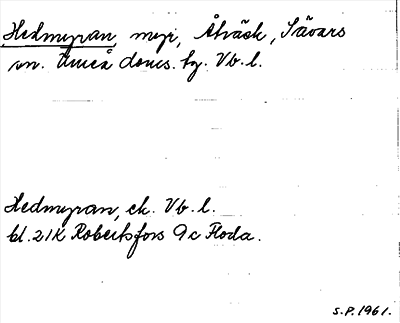 Hedmyran, myr, Åträsk, Sävars
sn. Umeå doms. tg. Vb. l.
Hedmyran, ek. Vb. l.
bl. 21K Robertsfors 9c Floda.
S.P. 1961.